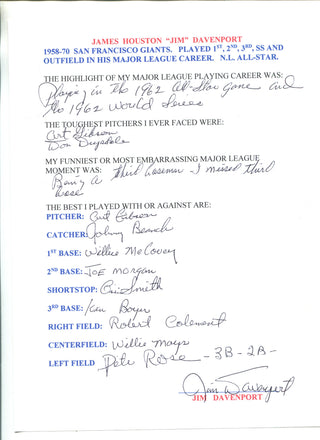 JAMES HOUSTON "JIM" DAVENPORT
1958-70 SAN FRANCISCO GIANTS. PLAYED 1ST, 2ND, 3RD, SS AND
OUTFIELD IN HIS MAJOR LEAGUE CAREER. N.L. ALL-STAR.
THE HIGHLIGHT OF MY MAJOR LEAGUE PLAYING CAREER WAS:
Playing in the 1962 All-Star game and
the 1962 World Series
THE TOUGHEST PITCHERS I EVER FACED WERE:
Gibson
Don Drysdale
MY FUNNIEST OR MOST EMBARRASSING MAJOR LEAGUE
MOMENT WAS: third baseman - I missed third
Being a
base
THE BEST I PLAYED WITH OR AGAINST ARE:
PITCHER: Gibson
CATCHER: Johnny Bench
1ST BASE: Willie McCovey
2ND BASE: JOE Morgan
SHORTSTOP: Smith
3RD BASE: Ken Boyer
RIGHT FIELD: Robert
CENTERFIELD: Willie Mays
LEFT FIELD Pete Rose - 3B - 2B -
Jim Davenport
JIM DAVENPORT